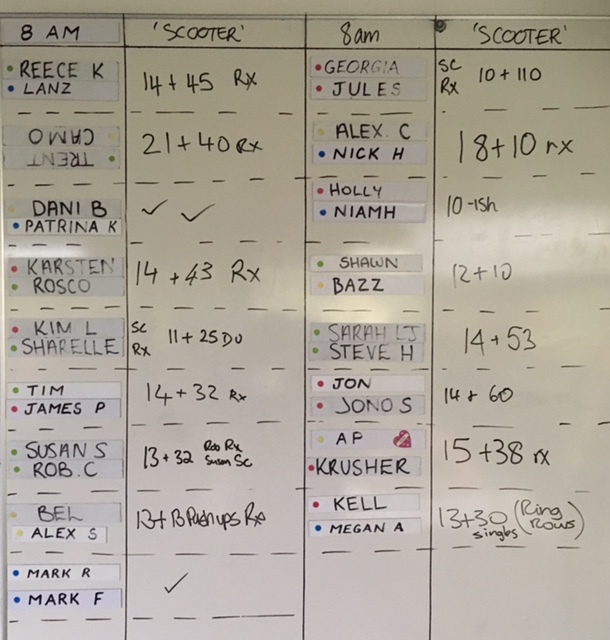 8 AM 'SCOOTER' 8am 'SCOOTER'
REECE K
LANZ
14 + 45 Rx
GEORGIA
JULES
SC
Rx
10 + 110
CAMO
TRENT
21 + 40 Rx
ALEX. C
NICK H
18 + 10 rx
DANI B
PATRINA K
✓ ✓
HOLLY
NIAMH
10-ish
KARSTEN
ROSCO
14 + 43 Rx
SHAWN
BAZZ
12 + 10
KIM L
SHARELLE
SC
Rx
11 + 25 DU
SARAH LJ
STEVE H
14 + 53
TIM
JAMES P
14 + 32 Rx
JON
JONO S
14 + 60
SUSAN S
ROB. C
13 + 32
Rob Rx
Susan Sc
AP
KRUSHER
15 + 38 rx
BEL
ALEX S
13 + 13 Pushups Rx
KELL
MEGAN A
13+30 (Ring Rows)
singles
MARK R
MARK F
✓